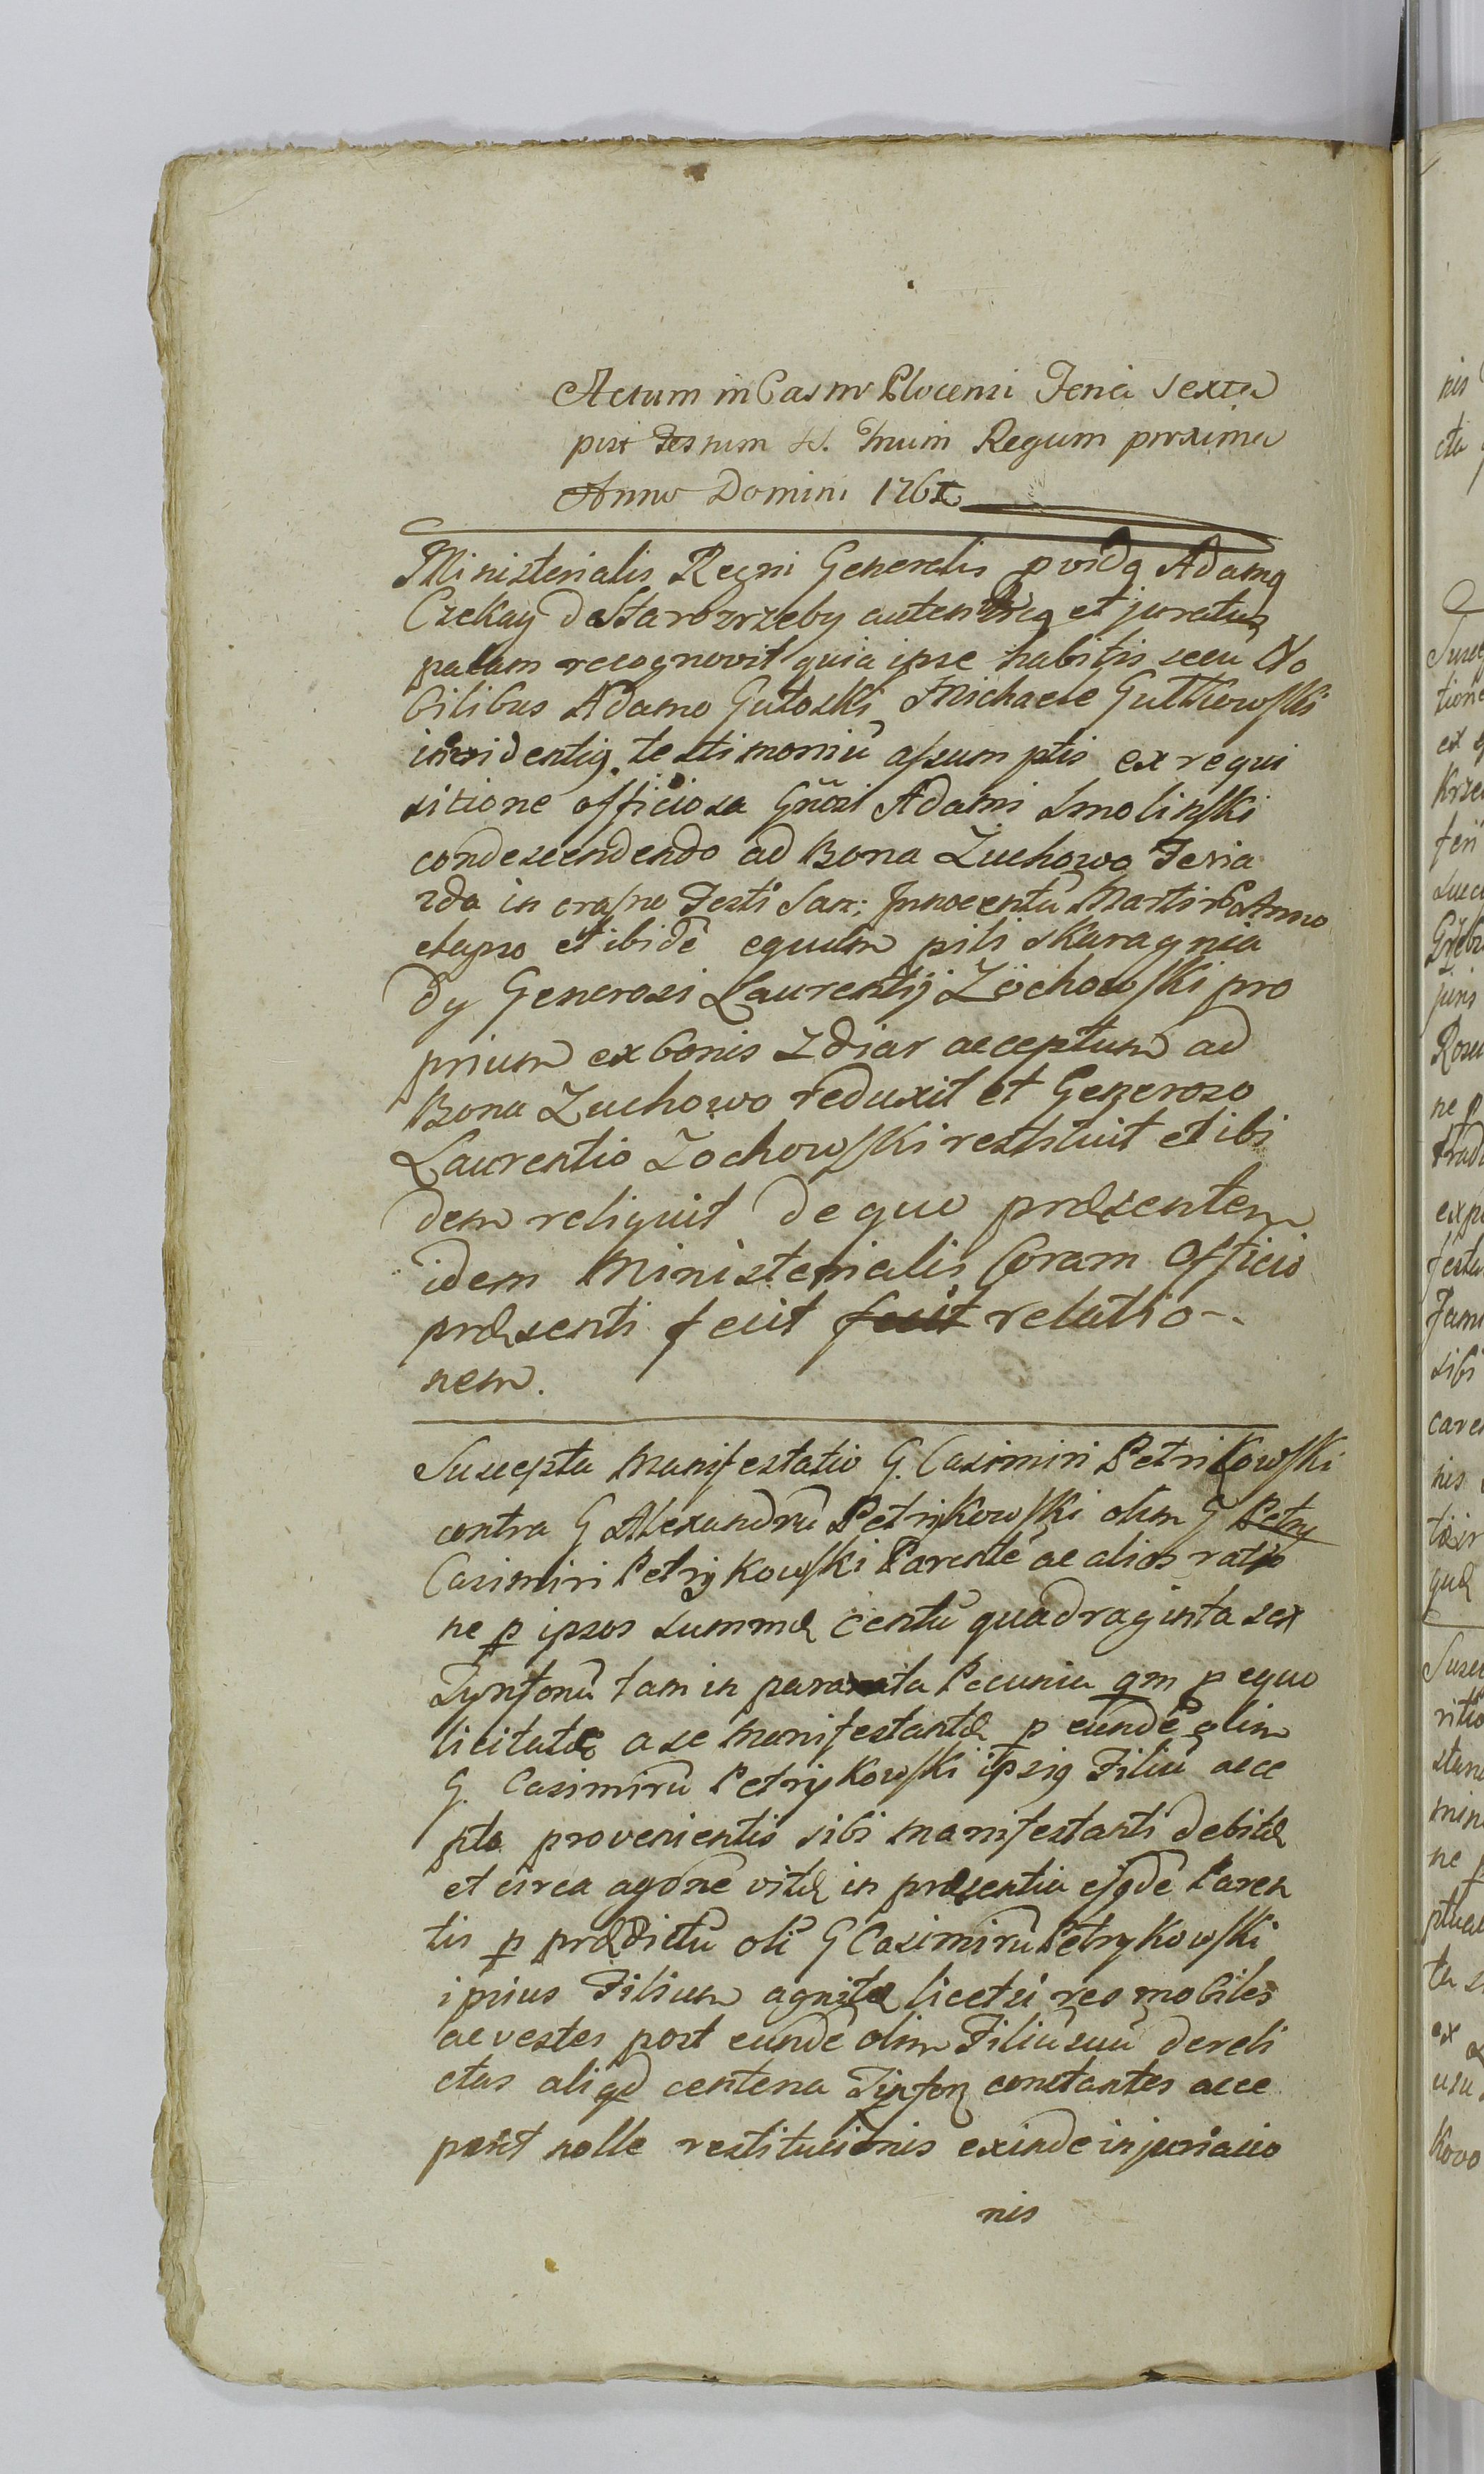 Actum in Castro Plocensi Feria sexta
post Festum SS. Trium Regum proxima
Anno Domini
Ministerialis Regni Generalis pvidq Adamq
Czekay de Starozrzeby autenticq et juratus
palam recognovit quia ipse habitis secu No
bilibus Adamo Gutoski Michaele Gutkowski
in evidentiq testimoniū assumptis ex requi
sitione officiosa Gnosi Adami Smolinski
condescendendo ad Bona Zuchowo Feria
2da in crasno Festi San: Innocentū Martirū Anno
elapso et ibidē equum pili skaragnia
dy Generosi Laurentij Zochowski pro
prium ex bonis Zdiar acceptum ad
Bona Zuchowo reduxit et Generoso
Laurentio Zochowski restituit et ibi
dem reliquit de quo præsentem
idem Ministerialis Coram Officio
præsenti fecit fecit relatio-
nem.
Suscepta Manifestatio G. Casimiri Petrikowski
contra G Alexandrū Petrykowski olim G Petry
Casimiri Petrykowski Parentē ac alios ratio
ne p ipsos summæ centū quadraginta sex
Tynfonū tam in parata Pecunia qm p equo
licitatæ a se Manifestantæ p eundē olim
G. Casimirū Petrykowski ipsiq Filiū acce
pta provenientis sibi manifestanti debitæ
et circa agonē vitæ in præsentia ejqdē Paren
tis p prædictū olī G Casimirū Petrykowski
ipsius Filium agnitæ licet si res mobiles
ac vestes post eundē olim Filiū suū dereli
ctas aliqd centena Tinfon constantes acce
perit nolle restitucionis exinde injuriacio
nis